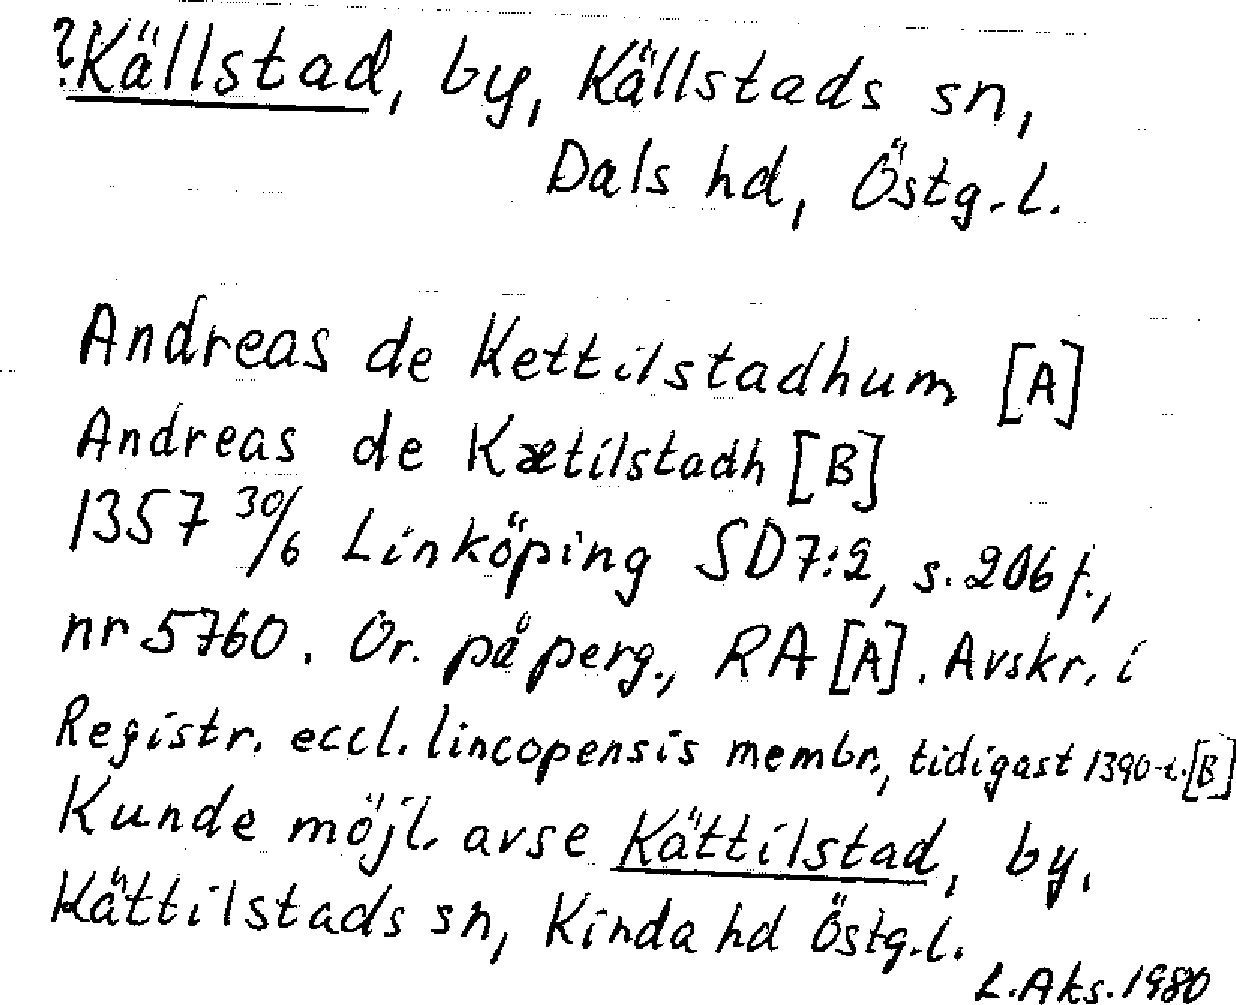 ?Källstad, by, Källstads sn,
Dals hd, Östg.l.
Andreas de Kettilstadhum [A]
Andreas de Kætilstadh [B]
1357 30/6 Linköping SD7:2, s. 206 f.,
nr 5760. Or. på perg., RA [A]. Avskr. i
Registr. eccl. lincopensis membr., tidigast 1390-t. [B]
Kunde möjl. avse Kättilstad, by,
Kättilstads sn, Kinda hd Östg.l.
L.Aks. 1980